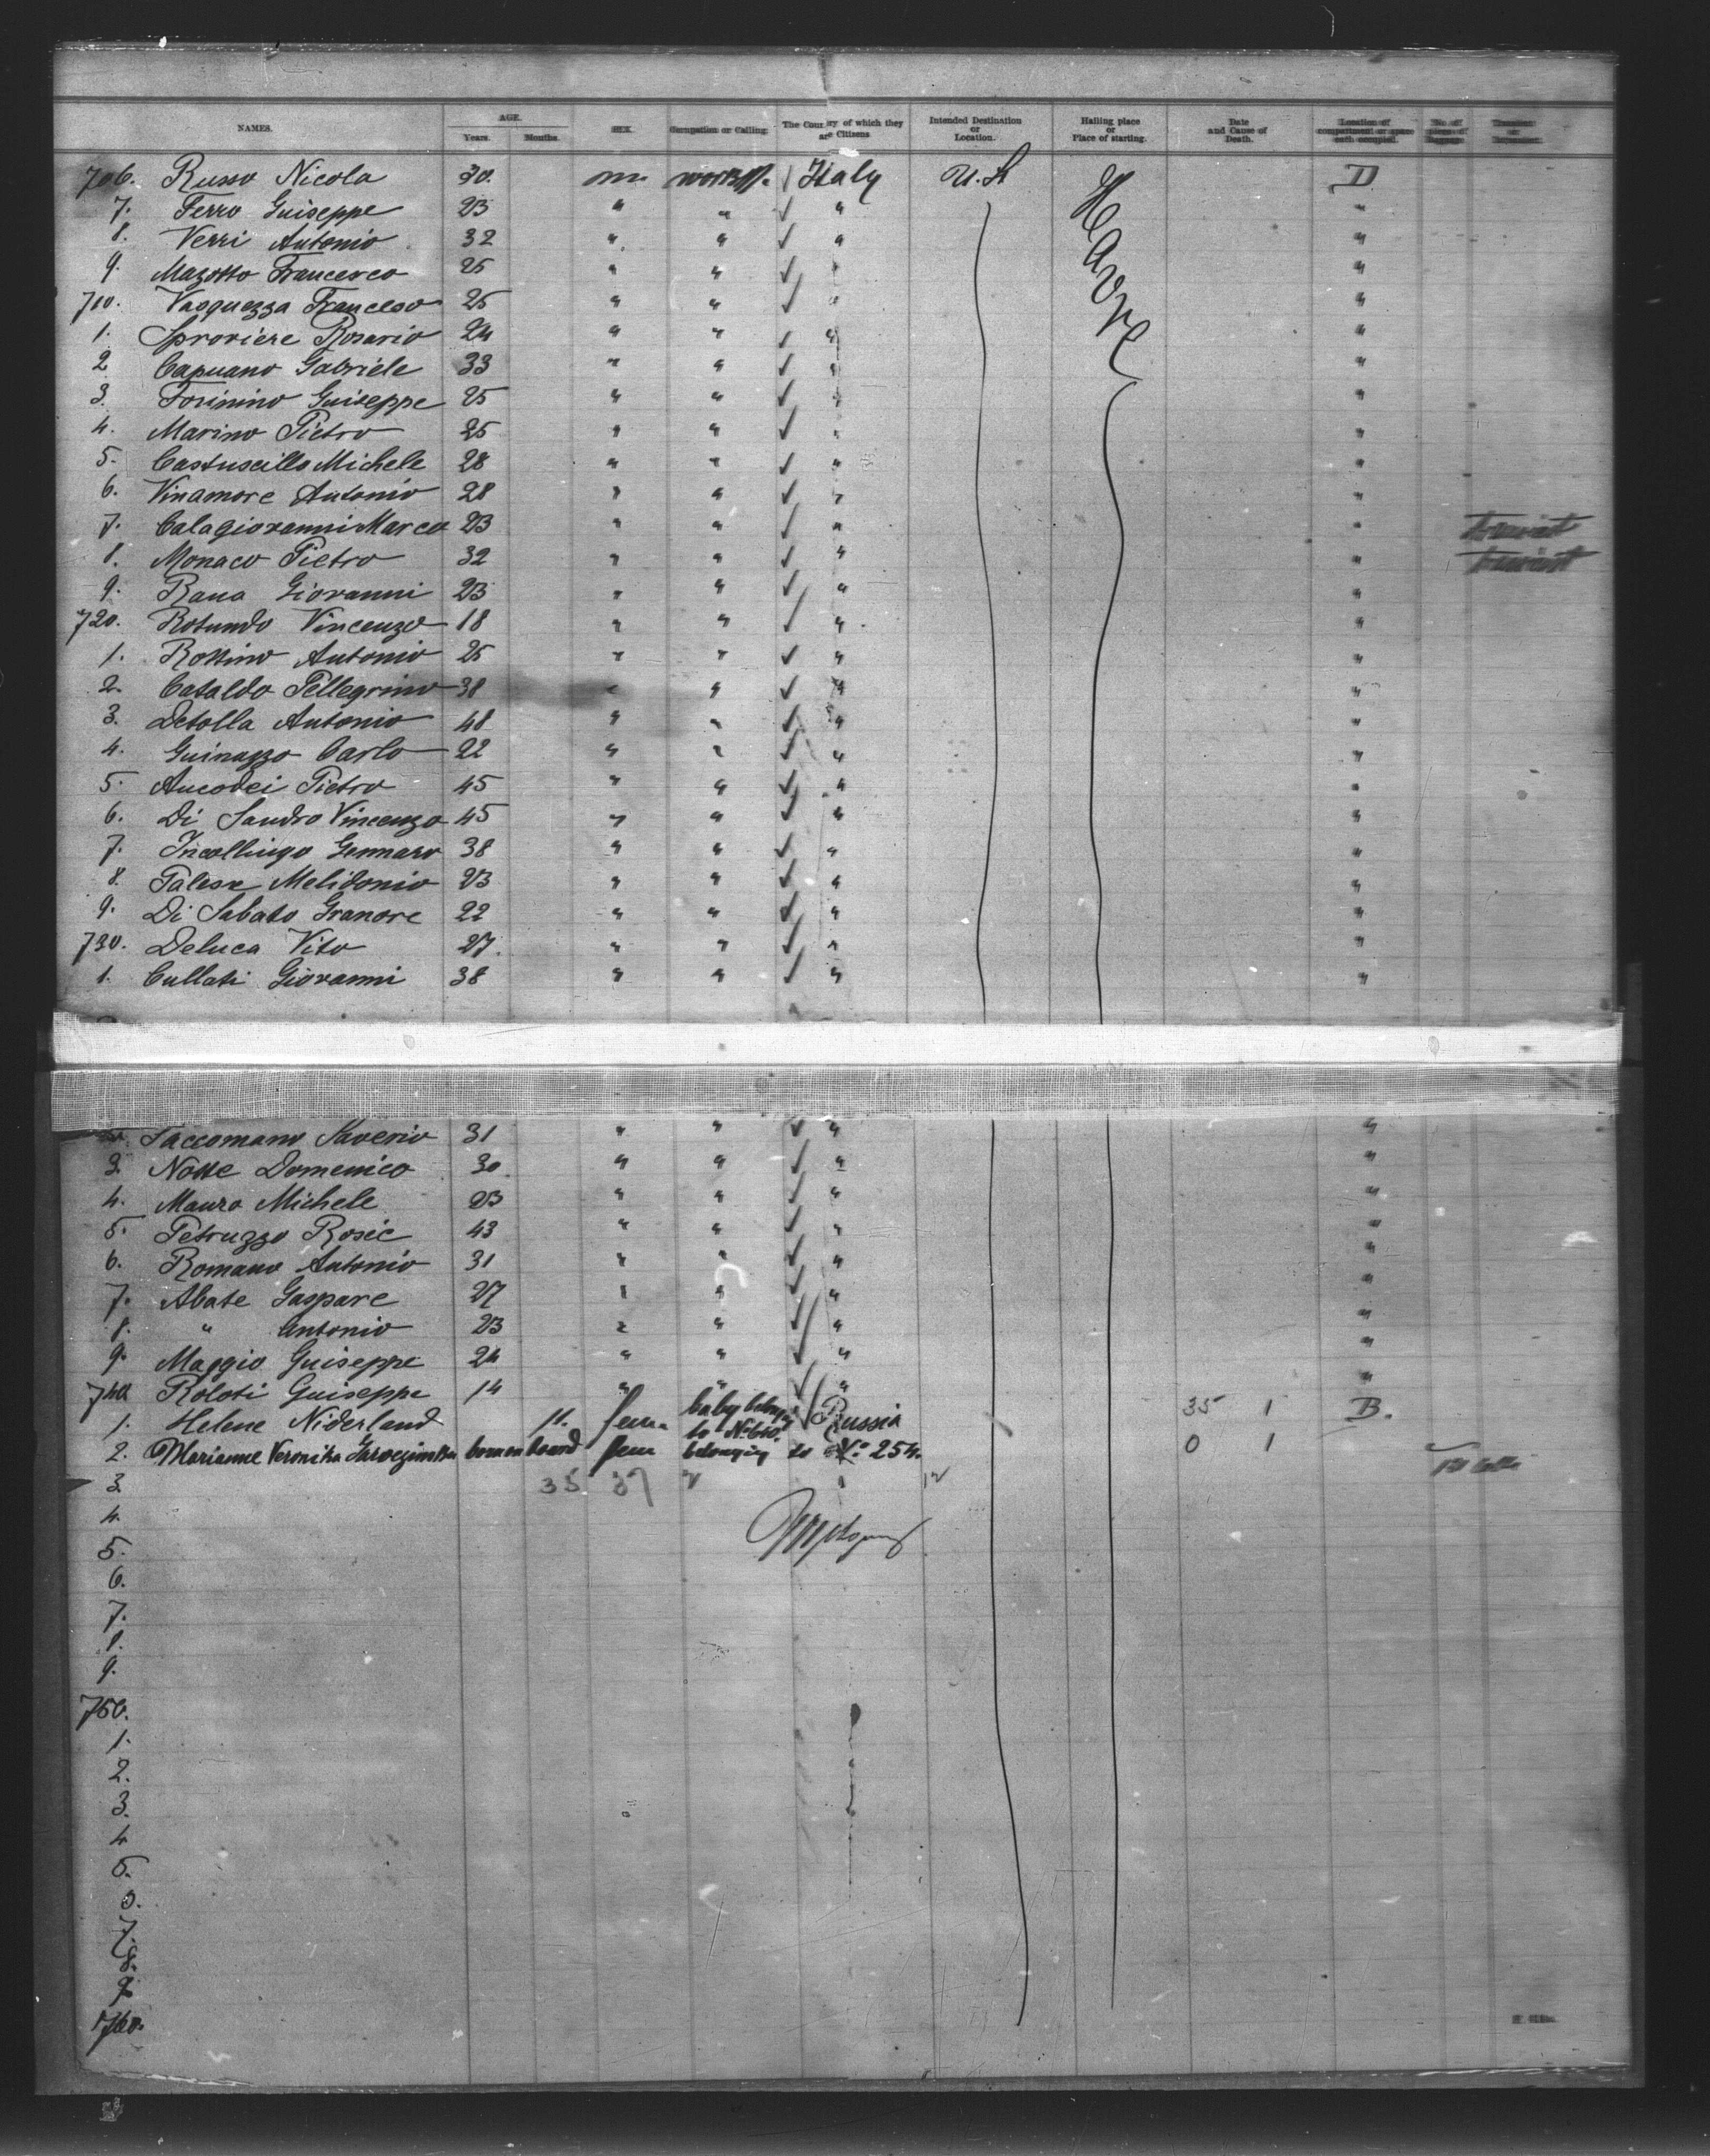 NAMES. AGE. Years. Months. SEX. Occupation or Calling. The Country of which they are Citizens Intended Destination or Location. Hailing place or Place of starting. Date and Cause of Death. Location of compartment or space each occupied. No. of pieces of Baggage.
706. Russo Nicola 30. m. Italy U. St Havre D
7. Ferro Guiseppe 23 " " ✓ " "
8. Verri Antonio 32 " " ✓ " "
9. Mazotto Francesco 25 " " ✓ " "
710. Vasquezza Francesco 25 " " ✓ " "
1. Sproviere Rosario 24 " " ✓ " "
2 Capuano Gabriele 33 " " ✓ " "
3. Forinino Guiseppe 25 " " ✓ " "
4. Marino Pietro 25 " " ✓ " "
5. Castuscillo Michele 28 " " ✓ " "
6. Vinamore Antonio 28 " " ✓ " "
7. Calagiovanni Marco 23 " " ✓ " "
8. Monaco Pietro 32 " " ✓ " "
9. Rana Giovanni 23 " " ✓ " "
720. Rotundo Vincenzo 18 " " ✓ " "
1. Antonio 25 " " ✓ " "
2. Cataldo Pellegrino 38 " " ✓ " "
3. Detolla Antonio 48 " " ✓ " "
4. Guinazzo Carlo 22 " " ✓ " "
5. Pietro 45 " " ✓ " "
6. Di Sandro Vincenzo 45 " " ✓ " "
7. Incollingo Gennaro 38 " " ✓ " "
8. Melidonio 23 " " ✓ " "
9. Di Sabato Granore 22 " " ✓ " "
730. Deluca Vito 27. " " ✓ " "
1. Cullati Giovanni 38 " " ✓ " "
Saccomano Saverio 31 " " ✓ " "
3. Domenico 30 " " ✓ " "
4. Mauro Michele 23 " " ✓ " "
5. Petruzzo Rosic 43 " " ✓ " "
6. Romano Antonio 31 " " ✓ " "
7. Abate Gaspare 27 " " ✓ " "
8. " Antonio 23 " " ✓ " "
9. Maggio Guiseppe 24 " " ✓ " "
740 Roloti Guiseppe 14 " " ✓ " "
1. Helene Niderland 11. fem. baby to No 610. ✓ Russia 35 1 B.
2. Marianne Veronika born on board fem belonging to No 254. 0 1
3. 35 37
4.
5.
6.
7.
8.
9.
750.
1.
2.
3.
4
5.
6.
7.
8.
9.
760.